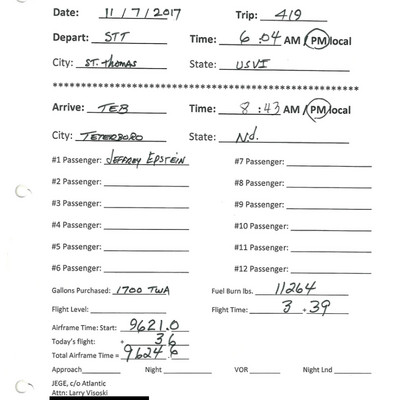 Date: 11/7/2017 Trip: 419
Depart: STT Time: 6:04 AM / PM local
City: ST. Thomas State: USVI
****************************************************************
Arrive: TEB Time: 8:43 AM / PM local
City: TETERBORO State: NJ.
#1 Passenger: JEFFREY EPSTEIN #7 Passenger:
#2 Passenger: #8 Passenger:
#3 Passenger: #9 Passenger:
#4 Passenger: #10 Passenger:
#5 Passenger: #11 Passenger:
#6 Passenger: #12 Passenger:
Gallons Purchased: 1700 TWA Fuel Burn lbs. 11264
Flight Level: Flight Time: 3 + 39
Airframe Time: Start: 9621.0
Today's flight: + 3.6
Total Airframe Time = 9624.6
Approach Night VOR Night Lnd
JEGE, c/o Atlantic
Attn: Larry Visoski